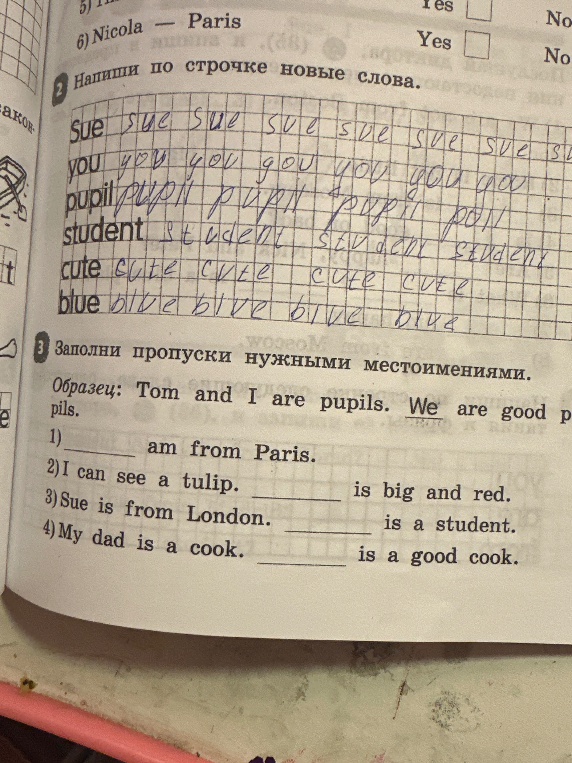 Yes No
6) Nicola — Paris Yes No
2 Напиши по строчке новые слова.
Sue sue sue sue sue sue sue su
you you you you you you you
pupil pupil pupil pupil poll
student student student student
cute cute cute cute cute
blue blue blue blue blue
3 Заполни пропуски нужными местоимениями.
Образец: Tom and I are pupils. We are good p
pils.
1) ______ am from Paris.
2) I can see a tulip. ________ is big and red.
3) Sue is from London. ________ is a student.
4) My dad is a cook. ________ is a good cook.